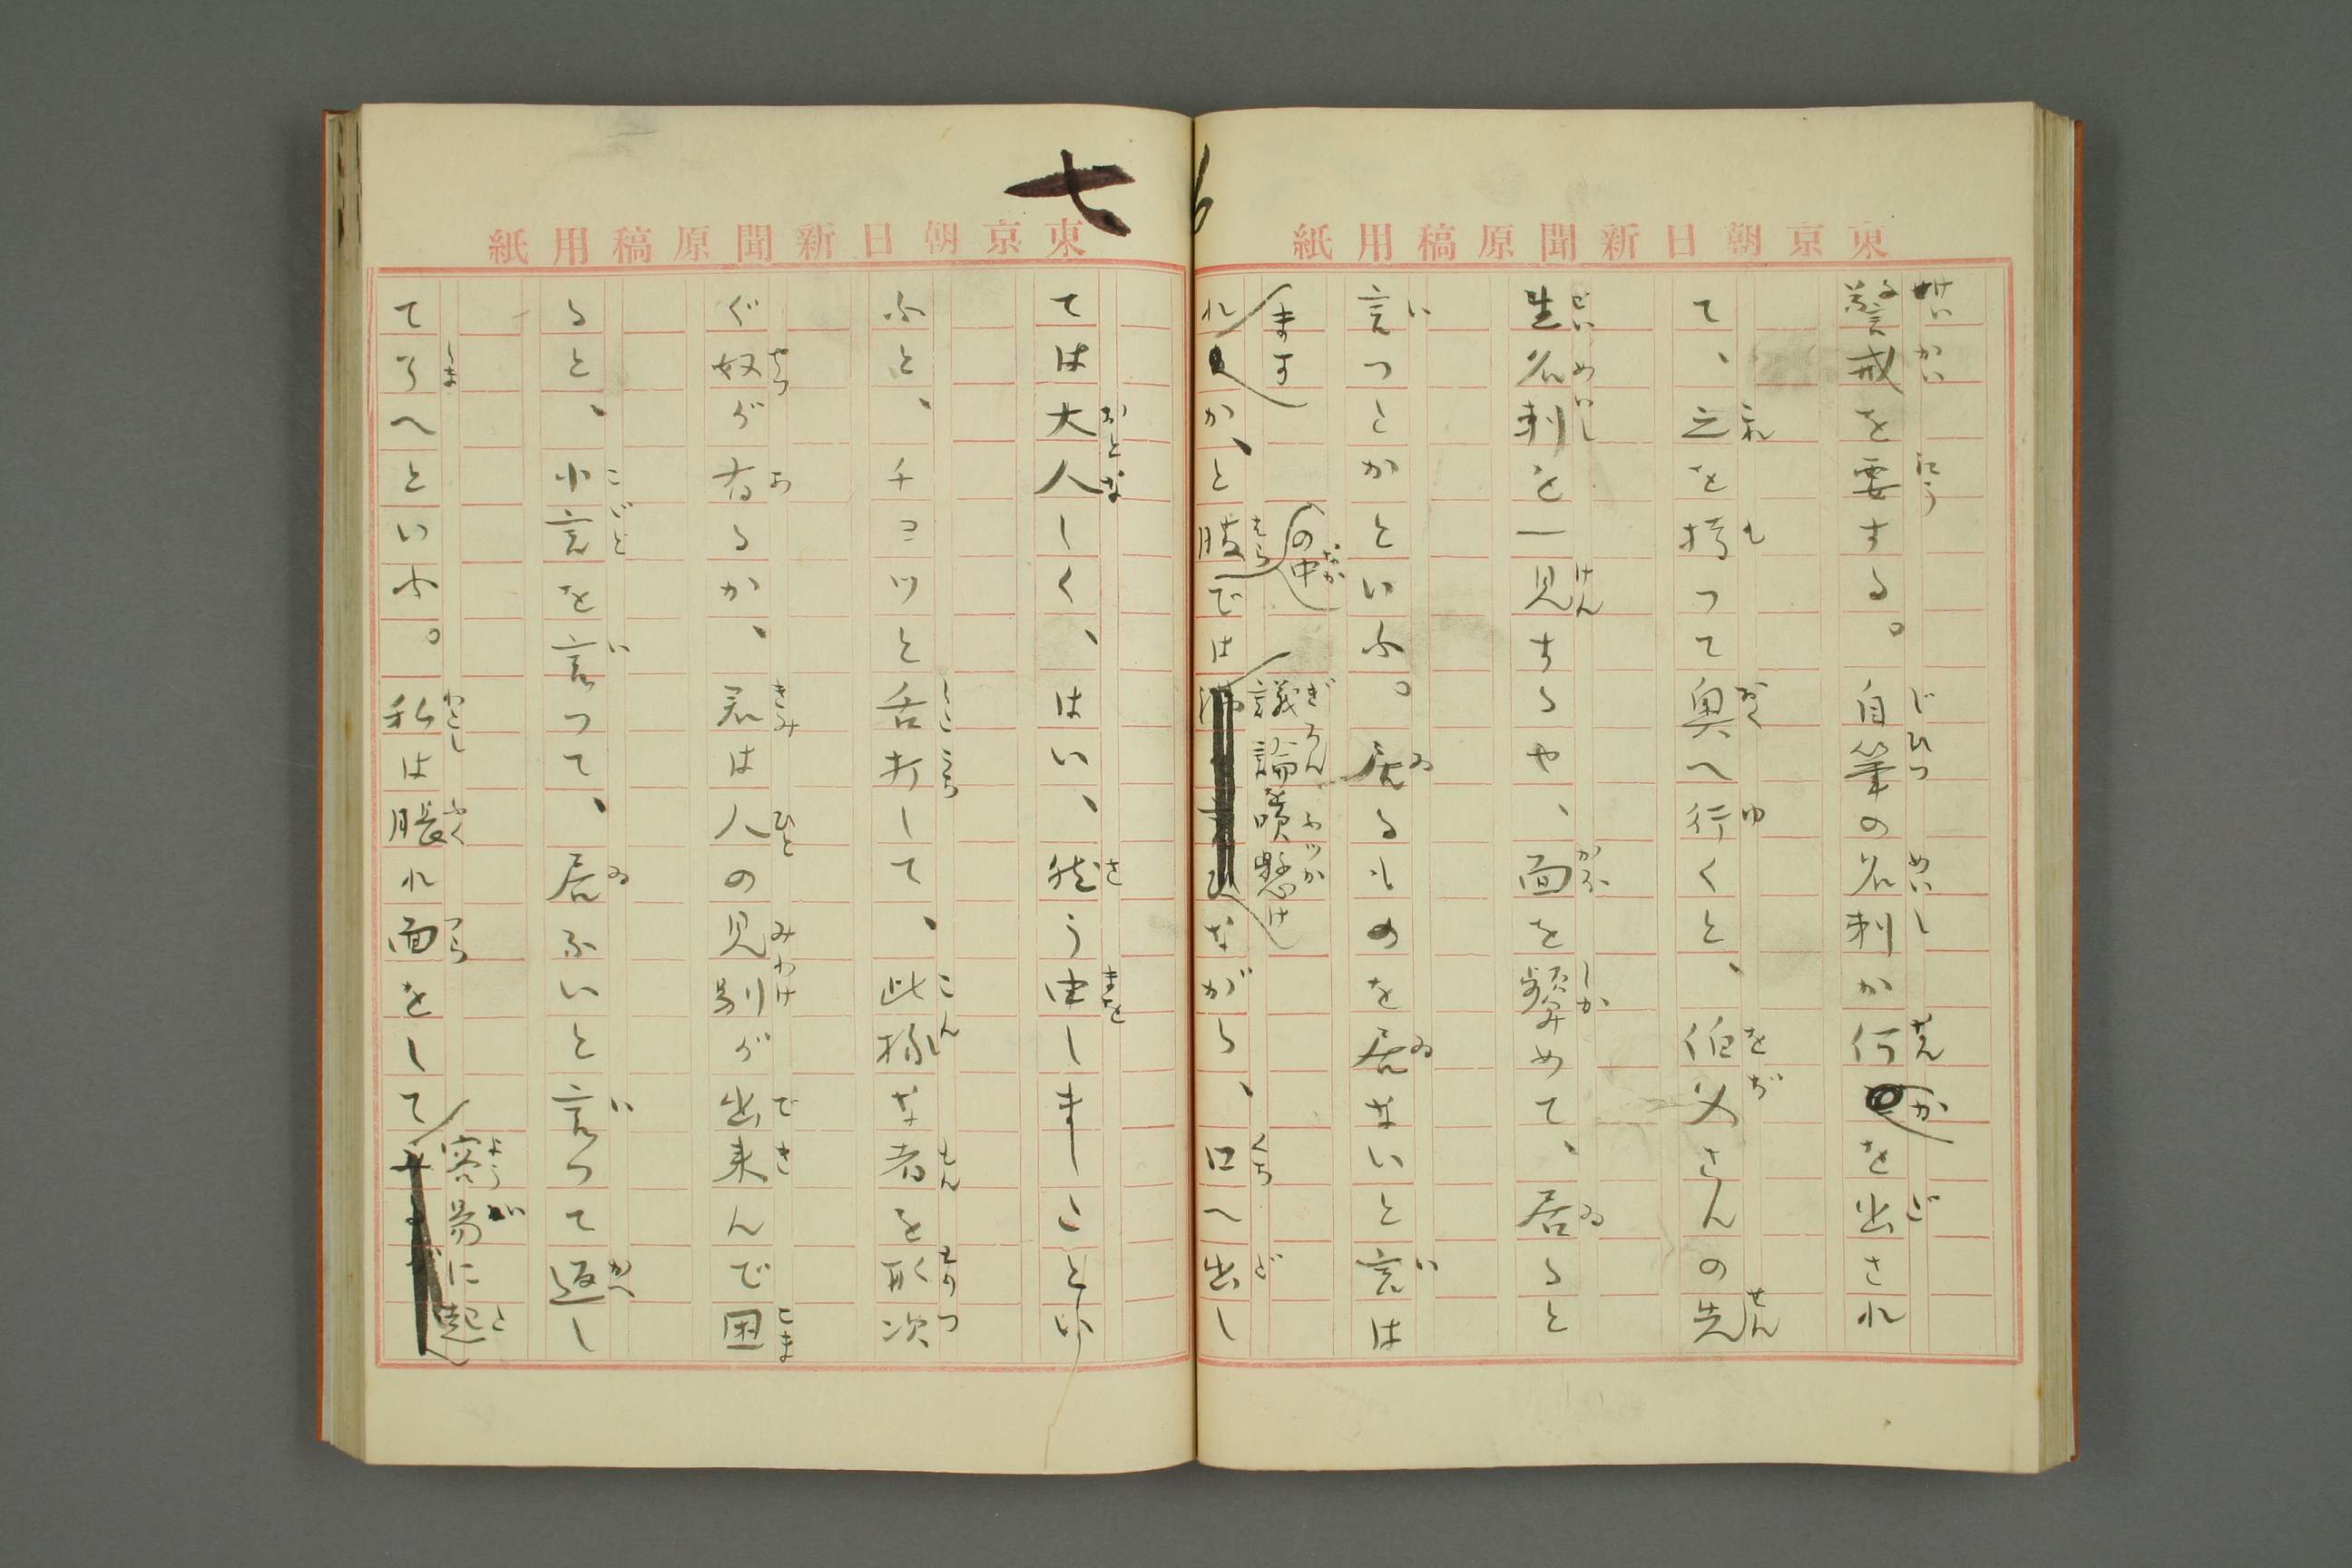 東京朝日新聞原稿用紙
警戒を要する。自筆の名刺か何かを出され
て、之を持つて奥へ行くと、伯父さんの先
生名刺を一見するや、面を顰めて、居ると
言つたかといふ。居るものを居ないと言は
れますか、と肚の中では議論を吹懸けながら、口へ出し
七
東京朝日新聞原稿用紙
ては大人しく、はい、然う申しましたとい
ふと、チヨツと舌打して、此様な者を取次
ぐ奴が有るか、君は人の見別が出来んで困
ると、小言を言つて、居ないと言つて返し
て了へといふ。私は脹れ面をして容易に起